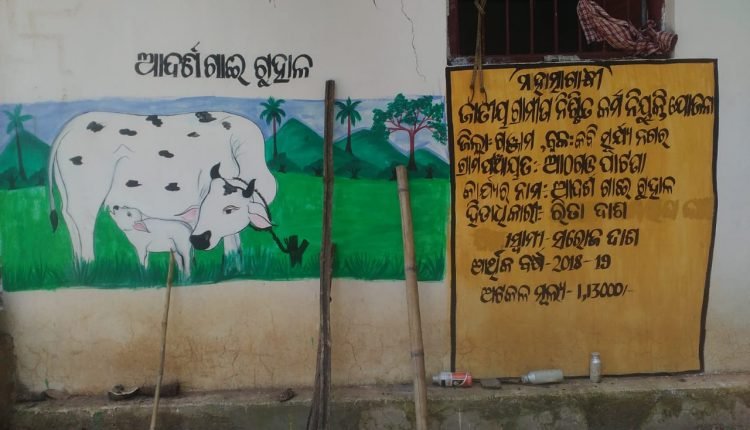 ଆଦର୍ଶ ଗାଈ ଗୁହାଳ
ମହାତ୍ମାଗାନ୍ଧୀ
ଜାତୀୟ ଗ୍ରାମୀଣ ନିଶ୍ଚିତ କର୍ମ ନିଯୁକ୍ତି ଯୋଜନା
ଜିଲ୍ଲା- ଗଞ୍ଜାମ , ବ୍ଲକ:- କବି ସୂର୍ଯ୍ୟ ନଗର
ଗ୍ରାମପଞ୍ଚାୟତ: ଆଠଗଡ ପାଟଣା
କାର୍ଯ୍ୟର ନାମ: ଆଦର୍ଶ ଗାଈ ଗୁହାଳ
ହିତାଧିକାରୀ: ରିତା ଦାଶ
ସ୍ୱାମୀ- ସରୋଜ ଦାଶ
ଆର୍ଥିକ ବର୍ଷ- 2018-19
ଅଟକଳ ମୂଲ୍ୟ- 1,13000/-